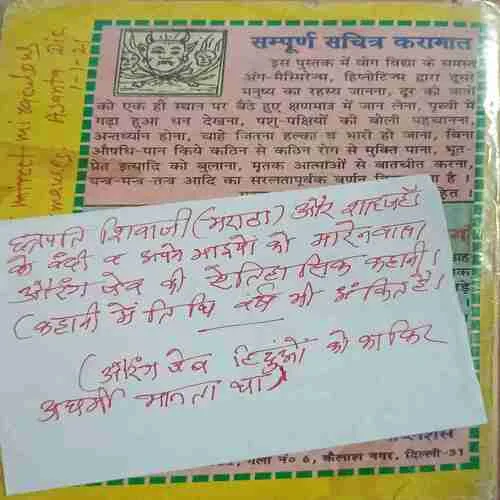 सम्पूर्ण सचित्र करामात
इस पुस्तक में योग विद्या के समस्त
अंग-मैस्मिरेज्म, हिप्नोटिज्म द्वारा दूसरे
मनुष्य का रहस्य जानना, दूर की बातों
को एक ही स्थान पर बैठे हुए क्षणमात्र में जान लेना, पृथ्वी में
गढ़ा हुआ धन देखना, पशु-पक्षियों की बोली पहचानना,
अन्तर्ध्यान होना, चाहे जितना हल्का व भारी हो जाना, बिना
औषधि-पान किये कठिन से कठिन रोग से मुक्ति पाना, भूत
प्रेत इत्यादि को बुलाना, मृतक आत्माओं से बातचीत करना,
यन्त्र-मन्त्र-तन्त्र आदि का सरलतापूर्वक वर्णन किया गया है ।
miraculous
Ajanta
1-1-21
छत्रपति शिवाजी (मराठा) और शाहजहाँ
के बंदी व अपने भाइयों को मारनेवाला
औरंगजेब की ऐतिहासिक कहानी।
(कहानी में तिथि वर्ष भी अंकित है।
(औरंगजेब हिंदुओं को काफिर
अधर्मी मानता था)
गली नं० 6, कैलाश नगर, दिल्ली-31